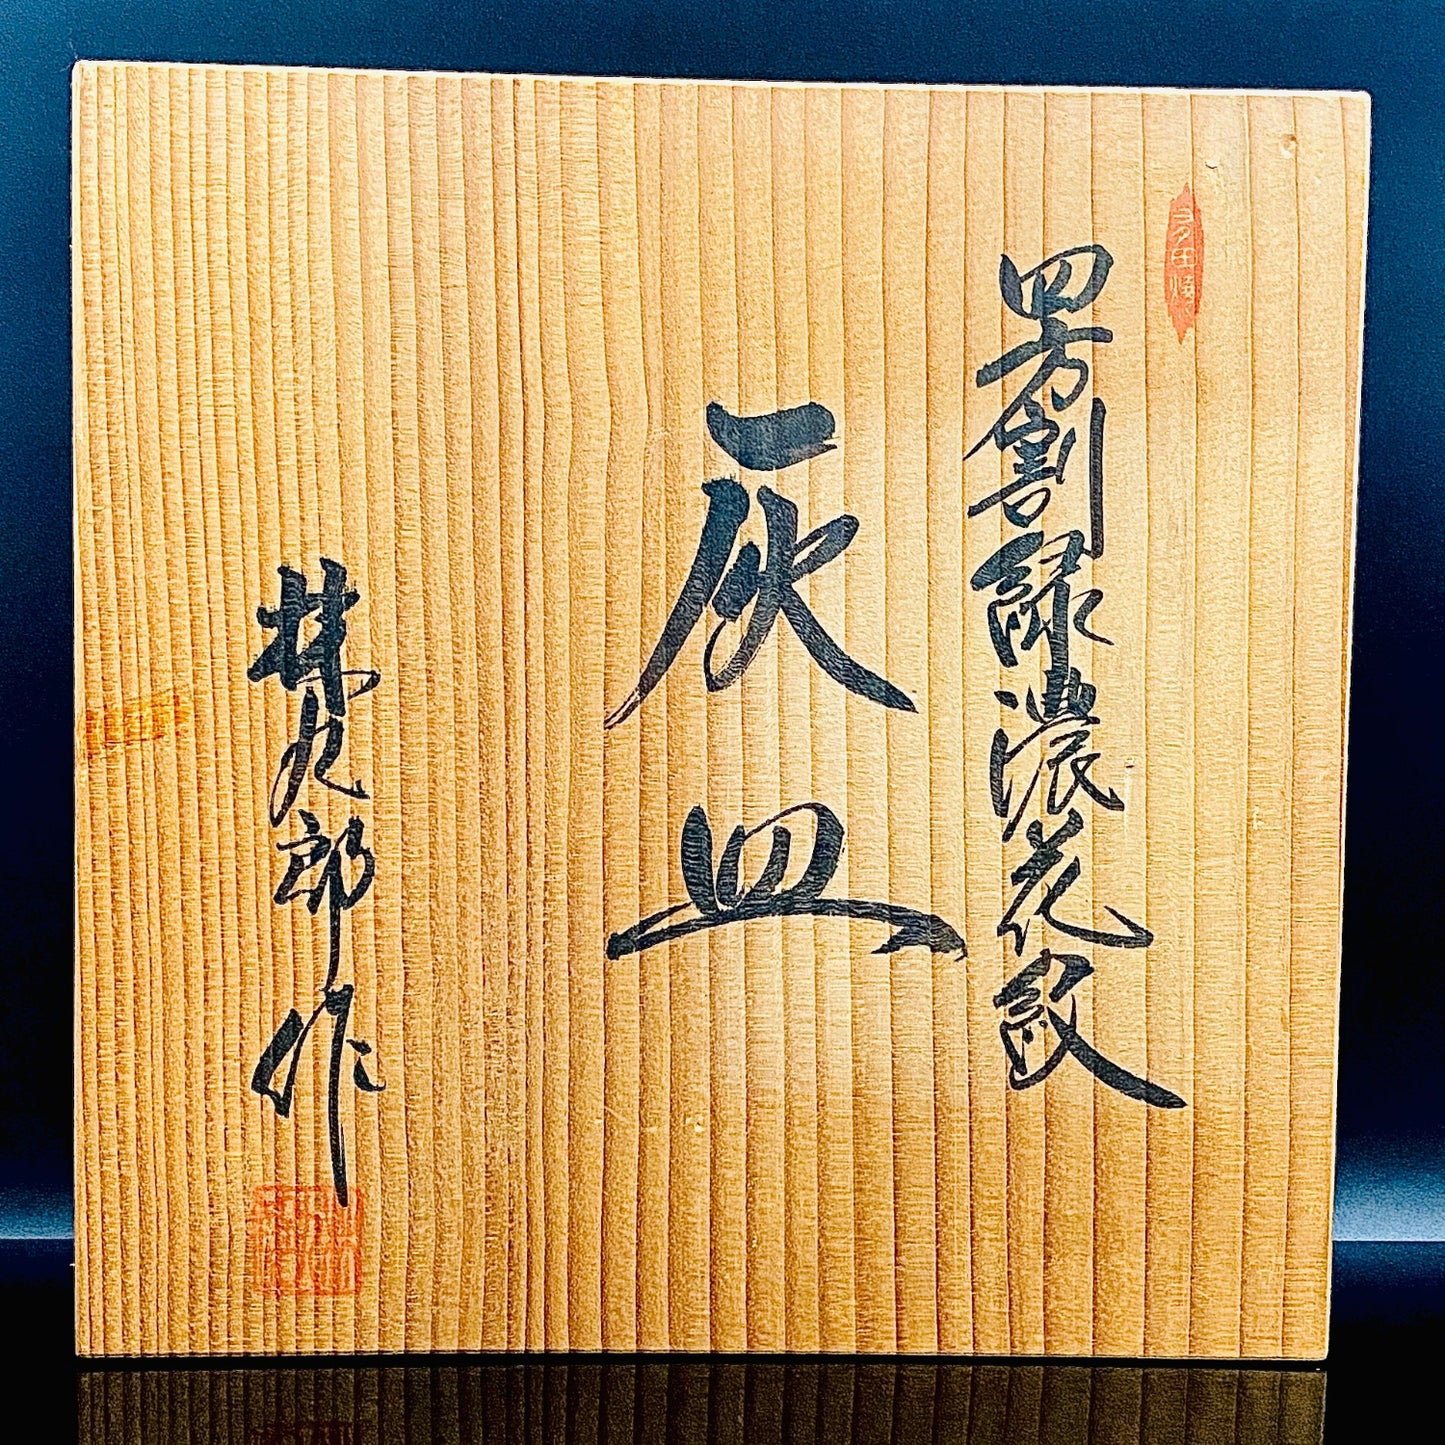 有田焼
四方割緑濃花紋
灰皿
林九郎作